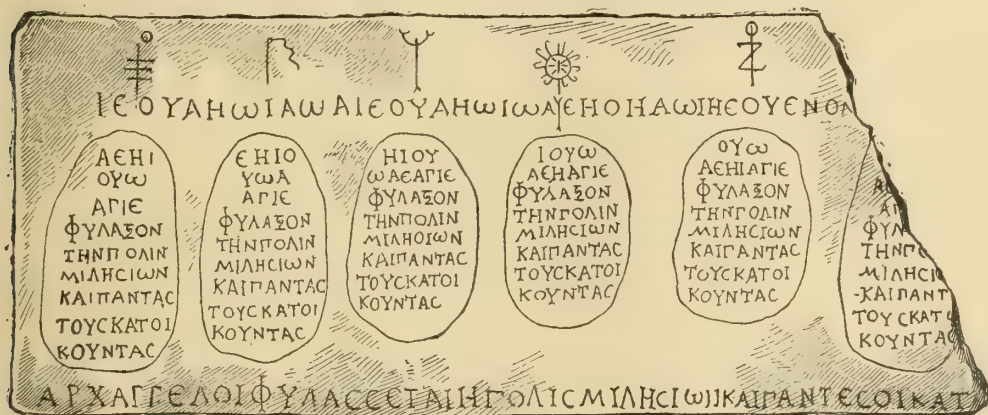 ΙΕΟΥΑΗωΙΑωΑΙΕΟΥΑΗωΙωΑΥΕΗΟΗΑωΙΗΕΟΥΕΝΟΛ
ΑΕΗΙ
ΟΥω
ΑΓΙΕ
ΦΥΛΑΞΟΝ
ΤΗΝΠΟΛΙΝ
ΜΙΛΗCΙωΝ
ΚΑΙΠΑΝΤΑC
ΤΟΥCΚΑΤΟΙ
ΚΟΥΝΤΑC
ΕΗΙΟ
ΥωΑ
ΑΓΙΕ
ΦΥΛΑΞΟΝ
ΤΗΝΠΟΛΙΝ
ΜΙΛΗCΙωΝ
ΚΑΙΠΑΝΤΑC
ΤΟΥCΚΑΤΟΙ
ΚΟΥΝΤΑC
ΗΙΟΥ
ωΑΕΑΓΙΕ
ΦΥΛΑΞΟΝ
ΤΗΝΠΟΛΙΝ
ΜΙΛΗΟΙωΝ
ΚΑΙΠΑΝΤΑC
ΤΟΥCΚΑΤΟΙ
ΚΟΥΝΤΑC
ΙΟΥω
ΑΕΗΑΓΙΕ
ΦΥΛΑΞΟΝ
ΤΗΝΠΟΛΙΝ
ΜΙΛΗCΙωΝ
ΚΑΙΠΑΝΤΑC
ΤΟΥCΚΑΤΟΙ
ΚΟΥΝΤΑC
ΟΥω
ΑΕΗΙΑΓΙΕ
ΦΥΛΑΞΟΝ
ΤΗΝΠΟΛΙΝ
ΜΙΛΗCΙωΝ
ΚΑΙΠΑΝΤΑC
ΤΟΥCΚΑΤΟΙ
ΚΟΥΝΤΑC
ΦΥΛ
ΤΗΝΠΟ
ΜΙΛΗCΙ
-ΚΑΙΠΑΝΤ
ΤΟΥCΚΑΤ
ΚΟΥΝΤΑC
ΑΡΧΑΓΓΕΛΟΙΦΥΛΑCCΕΤΑΙΗΠΟΛΙCΜΙΛΗCΙωΝΚΑΙΠΑΝΤΕCΟΙΚΑΤ